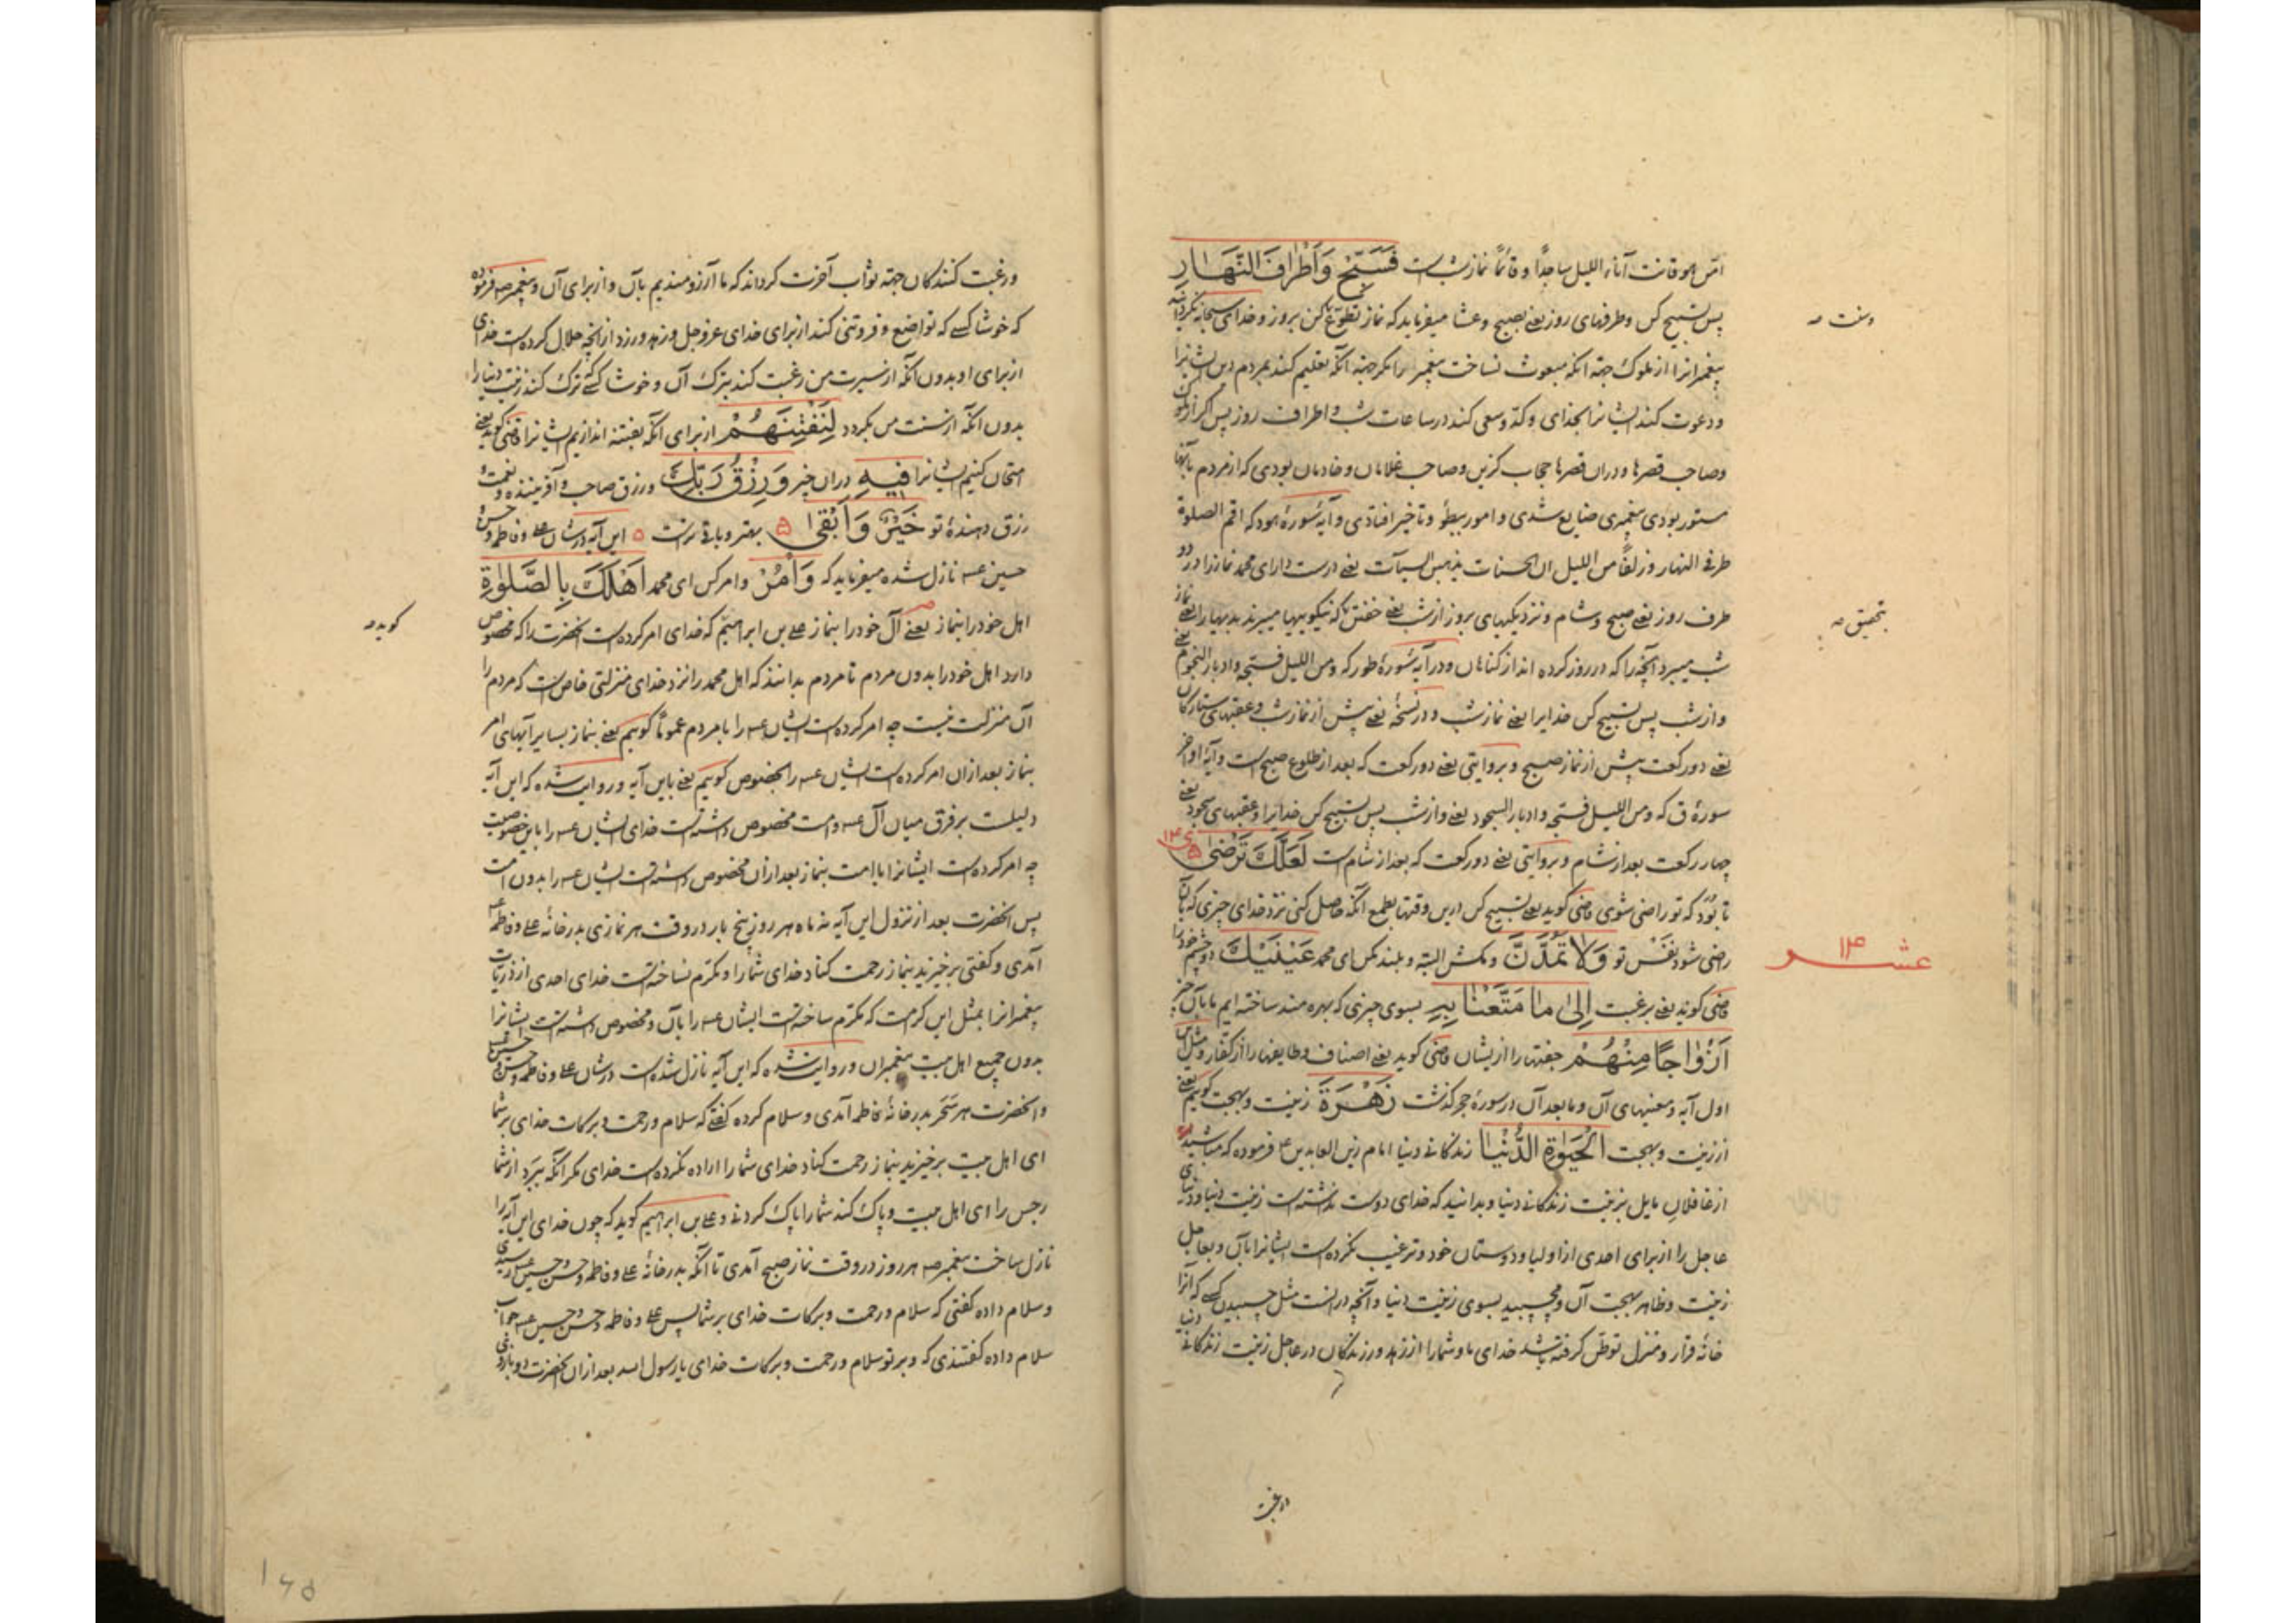 امّن هو قانت آناء اللیل ساجدًا و قائمًا نماز شب است فَسَبِّحْ وَاَطْرَافَ النَّهَارِ
پس تسبیح کن و طرفهای روز یعنی بصبح و عشا میفرماید که نماز تطوّع کن بروز و خدای سبحانه نکردانید
پیغمبرانرا از ملوک جهة آنکه مبعوث نساخت پیغمبر را مکر جهة آنکه تعلیم کند بمردم دین ایشانرا
و دعوت کند ایشانرا بخدای و کدّ و سعی کند در ساعات شب و اطراف روز پس اکر از ملوک
و صاحب قصرها و در آن قصرها حجاب کزین و صاحب غلامان و خادمان بودی که از مردم بآنها
مستور بودی پیغمبری ضایع شدی و امور ببطؤ و تاخیر افتادی و آیهٔ سورهٔ هود که اقم الصلوة
طرفی النهار و زلفًا من اللیل ان الحسنات یذهبن السیآت یعنی درست دار ای محمد نماز را در دو
طرف روز یعنی صبح و شام و نزدیکیهای بروز از شب یعنی خفتن که نیکوییها میبرند بدیها را یعنی نماز
شب میبرد آنچه را که در روز کرده اند از کناهان و در آیهٔ سورهٔ طور که و من اللیل فسبحه و ادبار النجوم یعنی
و از شب پس تسبیح کن خدایرا یعنی نماز شب و در نسخهٔ یعنی پیش از نماز شب و عقبهای ستارکان
یعنی دو رکعت پیش از نماز صبح و بروایتی یعنی دو رکعت که بعد از طلوع صبح است و آیهٔ اواخر
سورهٔ ق که و من اللیل فسبحه و ادبار السجود یعنی و از شب پس تسبیح کن خدایرا و عقبهای سجود یعنی
چهار رکعت بعد از شام و بروایتی یعنی دو رکعت که بعد از شام است لَعَلَّکَ تَرْضٰی
تا بُوَد که تو راضی شوی قاضی کوید یعنی تسبیح کن درین وقتها بطمع آنکه حاصل کنی نزد خدای چیزی که بآن
راضی شود نفس تو وَلَا تَمُدَّنَّ و مکش البتّه و بلند مکن ای محمد عَیْنَیْکَ دو چشم خود را
قاضی کوید یعنی برغبت اِلٰی مَا مَتَّعْنَا بِهِ بسوی چیزی که بهره مند ساخته ایم ما بآن چیز
اَزْوَاجًا مِنْهُمْ جفتها را از یشان قاضی کوید یعنی اصناف و طایفها را از کفار و مثل این
اول آیه و معنیهای آن و ما بعد آن در سورهٔ حجر کذشت زَهْرَةَ زینت و بهجت کوییم یعنی
از زینت و بهجت الْحَیٰوةِ الدُّنْیَا زندکانی دنیا امام زین العابدین ع فرموده که مباشید
از غافلان مایل بزینت زندکانی دنیا و بدانید که خدای دوست نداشته است زینت دنیا و دنیای
عاجل را از برای احدی از اولیا و دوستان خود و ترغیب نکرده است ایشانرا بآن و بعاجل
زینت و ظاهر بهجت آن و مچسپید بسوی زینت دنیا و آنچه در انست مثل چسپیدن کسی که آنرا
خانهٔ قرار و منزل توطّن کرفته باشد خدای ما و شما را از زهد ورزندکان در عاجل زینت زندکانی دنیا
و رغبت
تحقیق صه
عشر ۱۴
و رغبت کنندکان جهة ثواب آخرت کرداند که ما آرزومندیم بآن و از برای آن و پیغمبر صه فرموده
که خوشا کسی که تواضع و فروتنی کند از برای خدای عزوجل و زهد ورزد از انچه حلال کرده است خدای
از برای او بدون آنکه از سیرت من رغبت کند بترک آن و خوشا کسی که ترک کند زینت دنیا را
بدون آنکه از سنت من بکردد لِنَفْتِنَهُمْ از برای آنکه بفتنه اندازیم ایشانرا قاضی کوید یعنی
امتحان کنیم ایشانرا فِیهِ در آن چیز وَرِزْقُ رَبِّکَ و رزق صاحب و آفریننده و نعمت و
رزق دهندهٔ تو خَیْرٌ وَاَبْقٰی ۵ بهتر و باقی ترست ۵ این آیه در شان علی و فاطمه و حسن و
حسین عسه نازل شده میفرماید که وَأْمُرْ و امر کن ای محمد اَهْلَکَ بِالصَّلٰوةِ
اهل خود را بنماز یعنی آل خود را بنماز علی بن ابراهیم که خدای امر کرده است انحضرت را که مخصوص
دارد اهل خود را بدون مردم تا مردم بدانند که اهل محمد را نزد خدای منزلتی خاص است که مردم را
آن منزلت نیست چه امر کرده است ایشان عسه را با مردم عمومًا کوییم یعنی بنماز بسایر آیهای امر
بنماز بعد از ان امر کرده است ایشان عسه را بخصوص کوییم یعنی باین آیه و روایت شده که این آیه
دلیلست بر فرق میان آل عسه و امت مخصوص داشته است خدای ایشان عسه را باین خصوصیت
چه امر کرده است ایشانرا با امت بنماز بعد از ان مخصوص داشته است ایشان عسه را بدون امت
پس انحضرت بعد از نزول این آیه نه ماه هر روز پنج بار در وقت هر نمازی بدر خانهٔ علی و فاطمه عسه
آمدی و کفتی برخیزید بنماز رحمت کناد خدای شما را و مکرّم نساخته است خدای احدی از ذریات
پیغمبرانرا بمثل این کرامت که مکرّم ساخته است ایشان عسه را بآن و مخصوص داشته است ایشانرا
بدون جمیع اهل بیت پیغمبران و روایت شده که این آیه نازل شده است در شان علی و فاطمه و حسن و حسین عسه
و انحضرت هر سَحَر بدر خانهٔ فاطمه آمدی و سلام کرده کفتی که سلام و رحمت و برکات خدای بر شما
ای اهل بیت برخیزید بنماز رحمت کناد خدای شما را اراده نکرده است خدای مکر آنکه ببرد از شما
رجس را ای اهل بیت و پاک کند شما را پاک کردنی و علی بن ابراهیم کوید که چون خدای این آیه را
نازل ساخت پیغمبر صه هر روز در وقت نماز صبح آمدی تا آنکه بدر خانهٔ علی و فاطمه و حسن و حسین عسه رسیدی
و سلام داده کفتی که سلام و رحمت و برکات خدای بر شما پس علی و فاطمه و حسن و حسین عسه جواب
سلام داده کفتندی که و بر تو سلام و رحمت و برکات خدای یا رسول الله بعد از ان انحضرت دو بازوی
کوید صه
۱۶۵